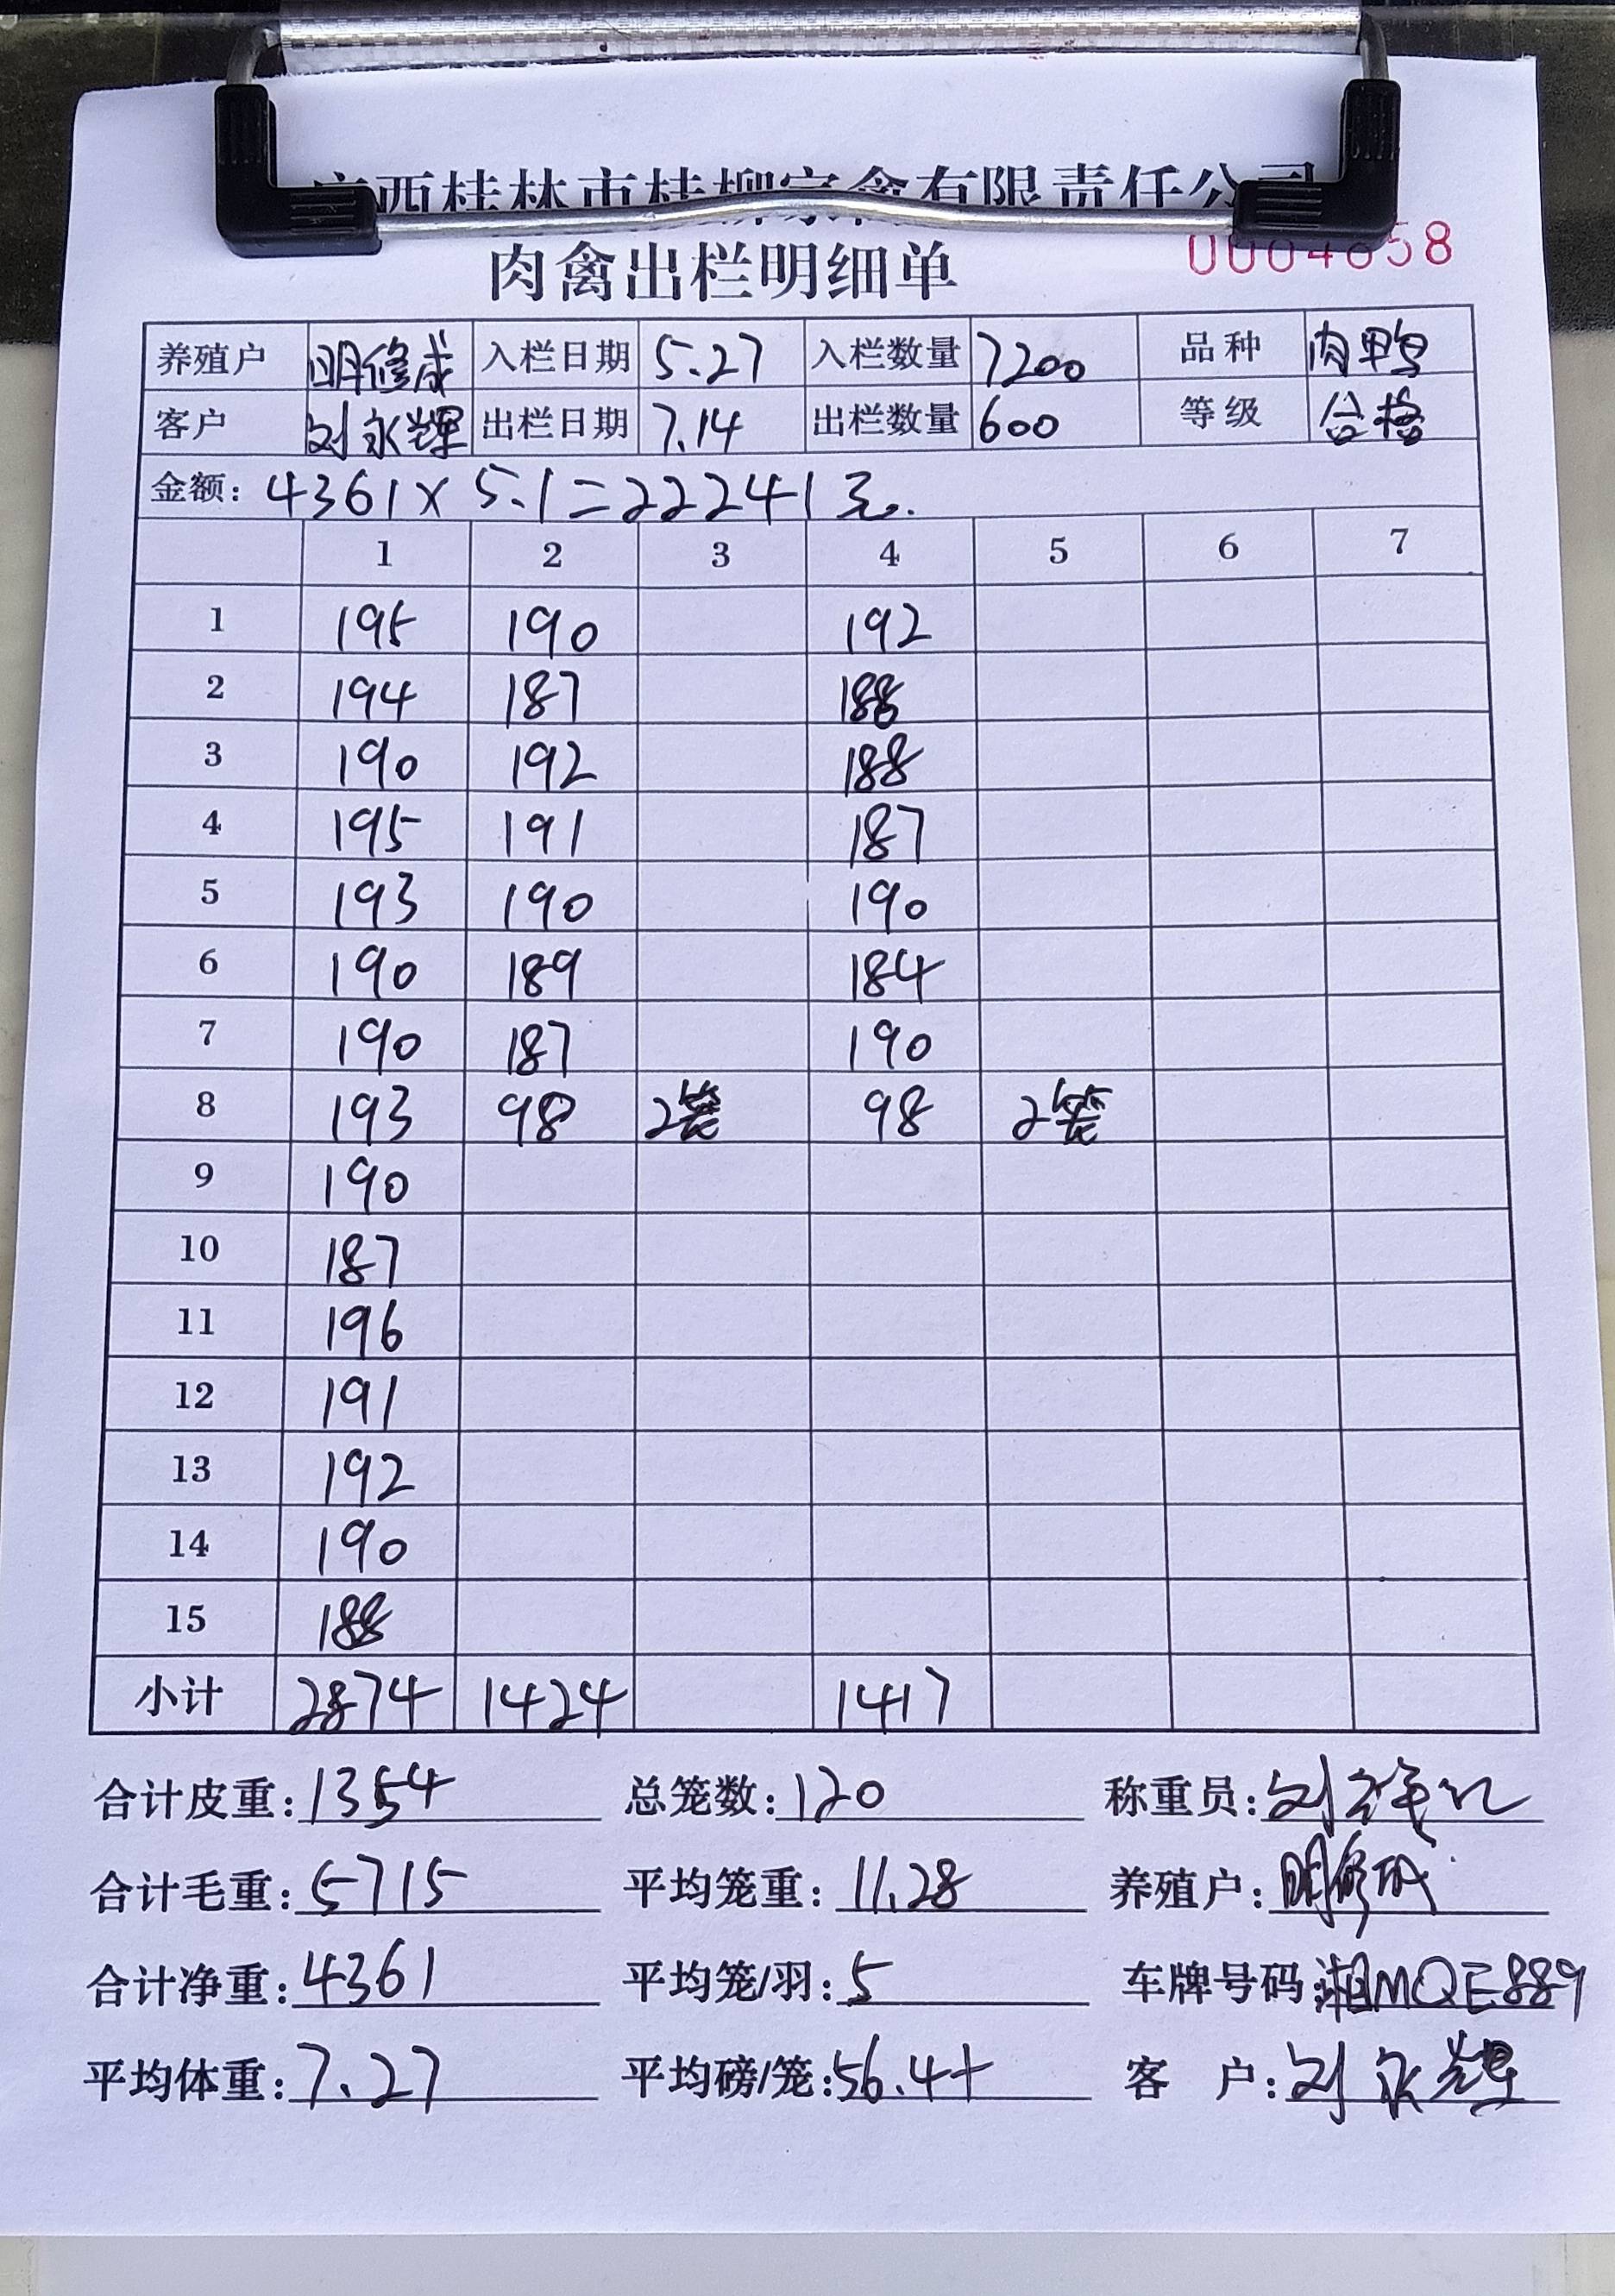 广西桂林市桂柳家禽有限责任公司
肉禽出栏明细单
0004658
养殖户 明修成 入栏日期 5.27 入栏数量 7200 品种 肉鸭
客户 刘永辉 出栏日期 7.14 出栏数量 600 等级 合格
金额: 4361×5.1=22241元.
1 2 3 4 5 6 7
1 195 190 192
2 194 187 188
3 190 192 188
4 195 191 187
5 193 190 190
6 190 189 184
7 190 187 190
8 193 98 2笼 98 2笼
9 190
10 187
11 196
12 191
13 192
14 190
15 188
小计 2874 1424 1417
合计皮重: 1354 总笼数: 120 称重员: 刘
合计毛重: 5715 平均笼重: 11.28 养殖户: 明修成
合计净重: 4361 平均笼/羽: 5 车牌号码: 湘MQE889
平均体重: 7.27 平均磅/笼: 56.4+ 客 户: 刘永辉